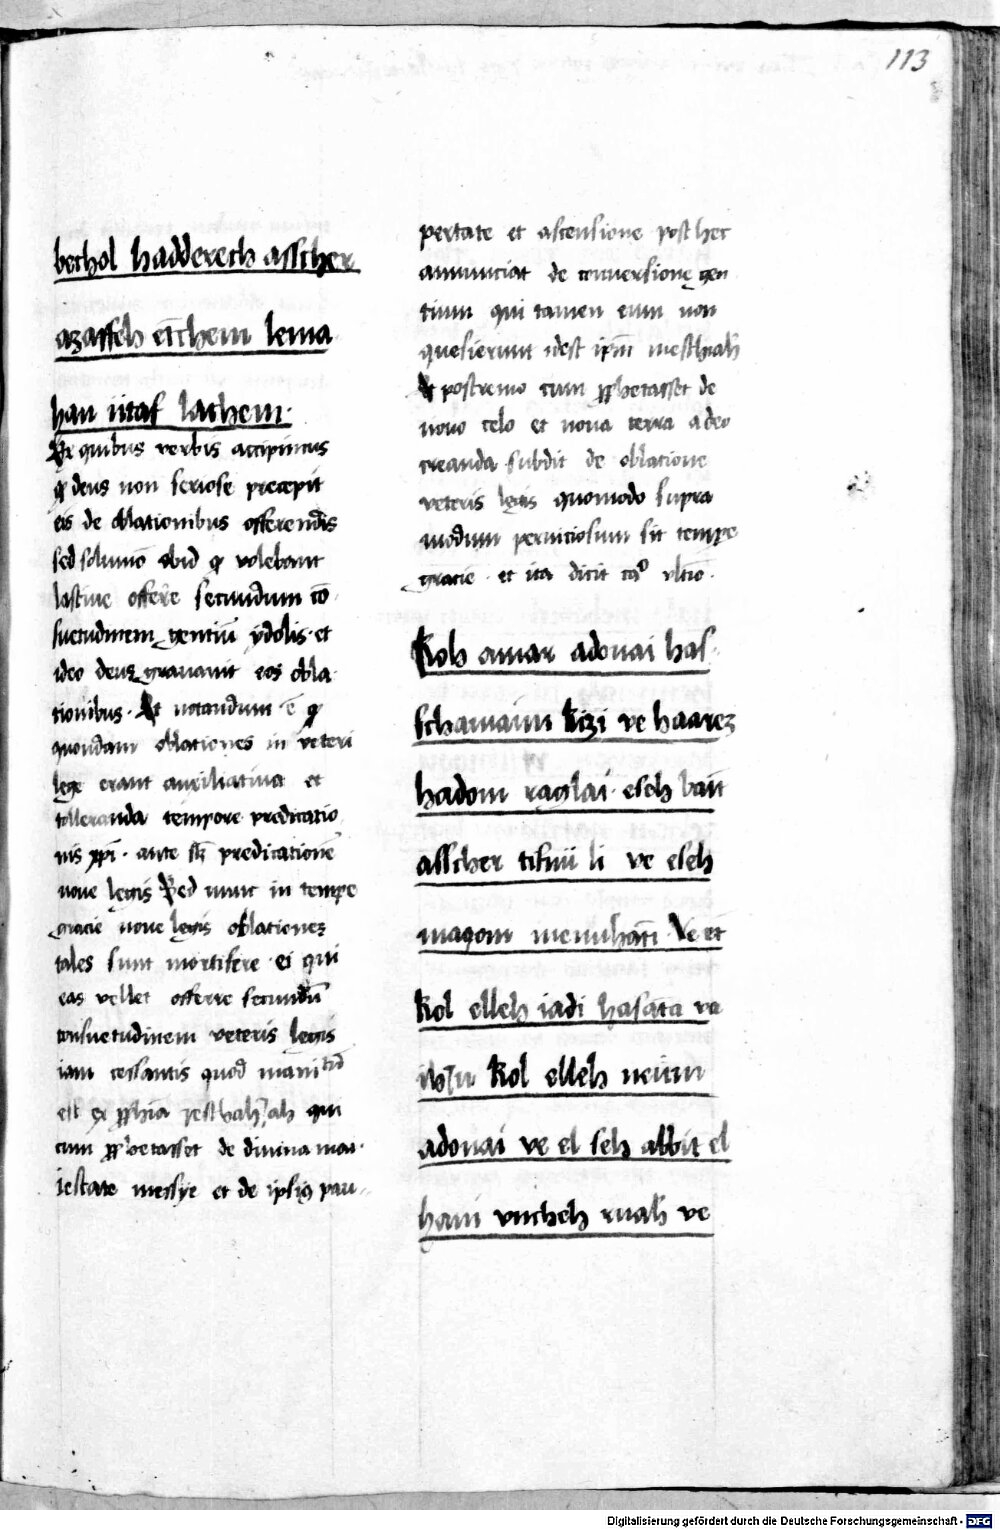 113
bechol hadderech asscher
azaffeh etchem lema
han iitaf lachem·
Ex quibus verbis accipimus
qͥ deus non seriose precepit
eis de oblationibus offerendis
sed solum̄o obid qͥ volebant
lastiue offere secundum cō
suetudinem gentiū ydolis· et
ideo deus grauauit eos obla
tionibus· Et notandum ē qͥ
quondam oblationes in veteri
lege erant auxiliatiua et
tolleranda tempore predicatio
nis xpī· ante predicationē
noue legis Sed nunc in tempe
gracie noue legis oblationes
tales sunt mortifere ei qui
eas vellet offerre secundū
consuetudinem veteris legis
iam cessantis quod
est ex qui
cum de diuina mai
iestate messye et de ipsius pau
pertate et ascensione post hec
annunciat de conuersione gen
tium qui tamen eum non
quesierunt idest ip̄m
Et postremo cum de
nouo celo et noua terra a deo
creanda subdit de oblatione
veteris legis quomodo supra
modum perniciosum sit tempe
gracie· et ita dicit caº vltīo·
Koh amar adonai has
schamaim kizi ve haarez
hadom raglai· eseh bait
asscher tifnu li ve eseh
magom menuhati· Ve et
kol elleh iadi hasata va
kol elleh neum
adonai ve el seh abbit el
hani vncheh ruah ve
Digitalisierung gefördert durch die Deutsche Forschungsgemeinschaft - DFG